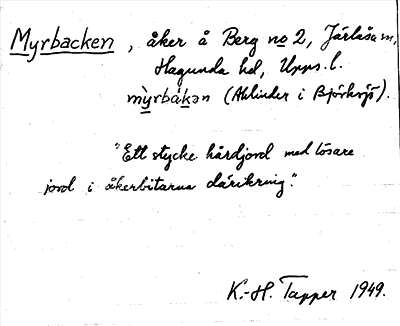 Myrbacken, åker å Berg no 2, Järlåsa sn,
Hagunda hd, Upps. l.
mỳrbákən (Ahlinder i Björkvjö).
"Ett stycke hårdjord med lösare
jord i åkerbitarna däríkring."
K.-H. Tapper 1949.